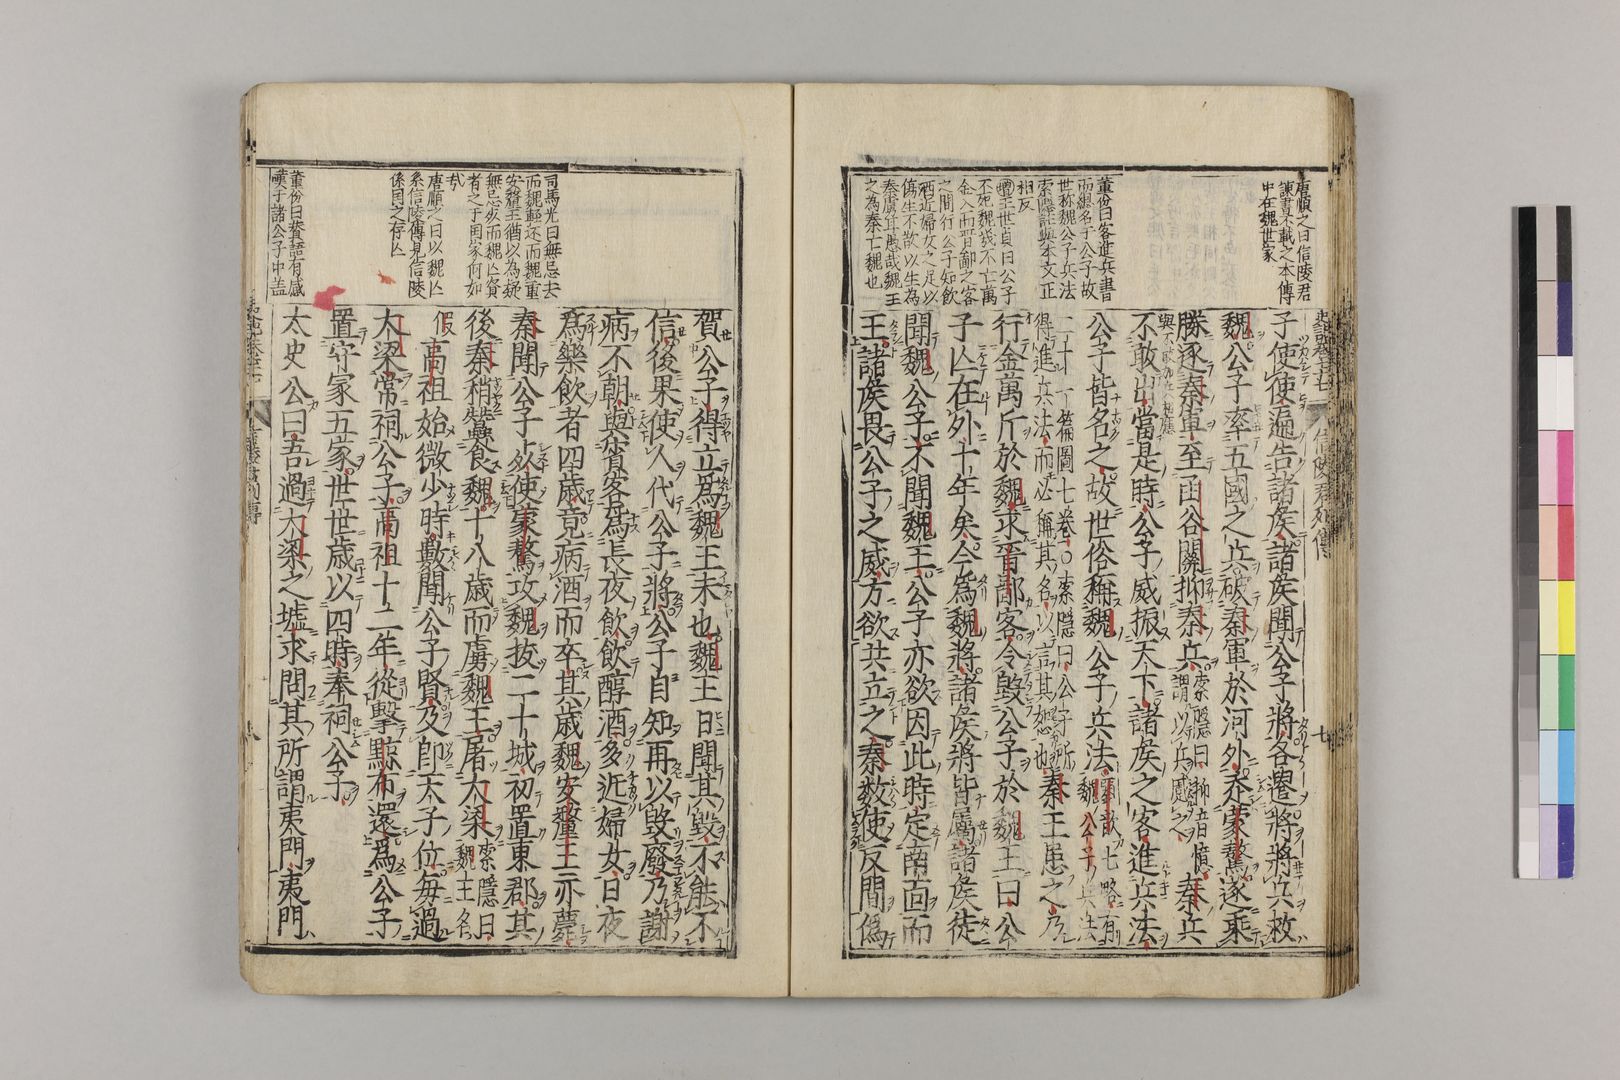 唐順之曰信陵君
諫書不載之本傳
中在魏世家
董份曰客進兵書
而總名于公子故
世称魏公子兵法
索隱註與本文正
相反
王世貞曰公子
不死魏幾不亡萬
金入而晋鄙之客
之間行公子知飲
酒近婦女之足以
傷生不敢以生為
秦虜耳悲哉魏王
之為秦亡魏也
子使使遍告諸侯諸侯聞公子將各遣將將兵救
魏公子率五國之兵破秦軍於河外走蒙驁遂乘
勝逐秦軍至函谷關抑秦兵索隱曰抑音憶秦兵
謂以兵蹙之
不敢出當是時公子威振天下諸侯之客進兵法
公子皆名之故世俗稱魏公子兵法劉歆七略有
魏公子兵法
二十一篇圖七卷○索隱曰公子所
得進兵法而必稱其名以言其恕也秦王患之乃
行金萬斤於魏求晋鄙客令毀公子於魏王曰公
子亾在外十年矣今為魏將諸侯將皆屬諸侯徒
聞魏公子不聞魏王公子亦欲因此時定南面而
王諸侯畏公子之威方欲共立之秦數使反間偽
司馬光曰無忌去
而魏輕还而魏重
安釐王猶以為疑
無忌歿而魏亾賢
者之于国家何如
哉
唐順之曰以魏亾
系信陵傳見信陵
係国之存亾
董份曰賛語有感
嘆于諸公子中盖
賀公子得立為魏王未也魏王日聞其毀不能不
信後果使人代公子將公子自知再以毀廢乃謝
病不朝與賓客為長夜飲飲醇酒多近婦女日夜
為樂飲者四歲竟病酒而卒其歲魏安釐王亦薨
秦聞公子死使蒙驁攻魏拔二十城初置東郡其
後秦稍蠶食魏十八歲而虜魏王屠大梁索隱曰
魏王名
假高祖始微少時數聞公子賢及即天子位每過
大梁常祠公子高祖十二年從擊黥布還為公子
置守冢五家世世歲以四時奉祠公子
太史公曰吾過大梁之墟求問其所謂夷門夷門